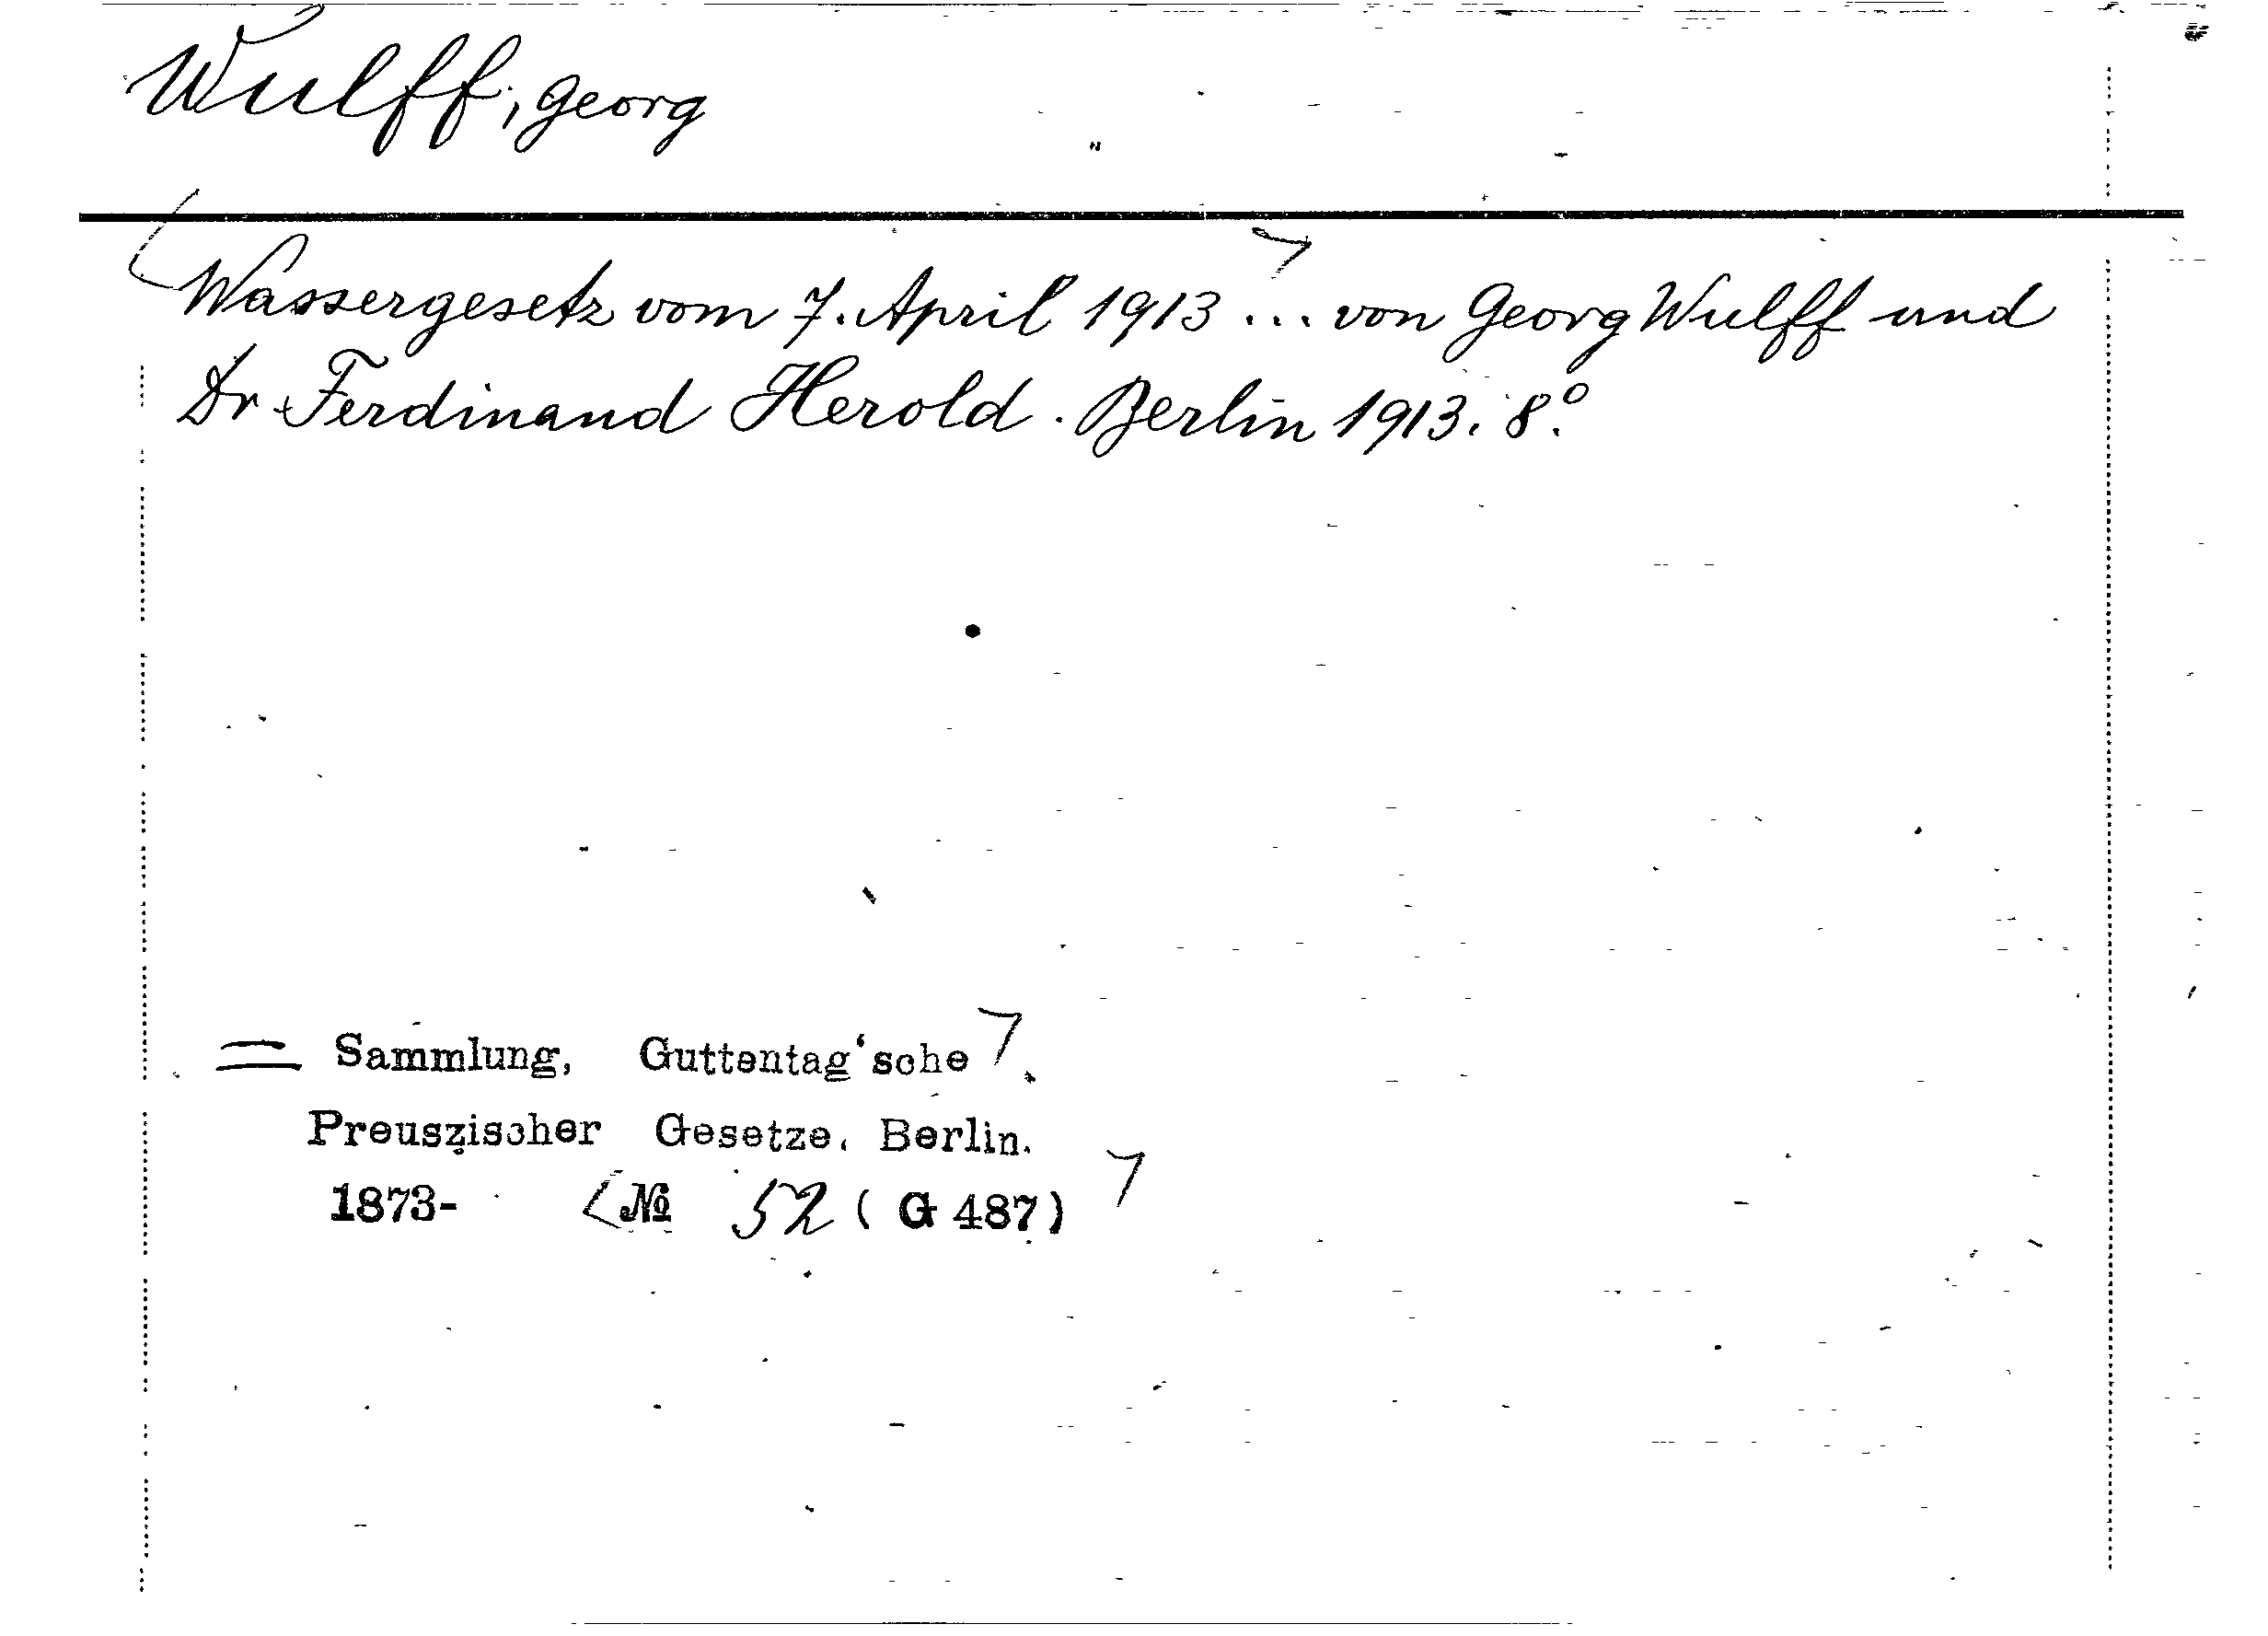 Wulff, Georg
Wassergesetz vom 7. April 1913 ... von Georg Wulff und
Dr Ferdinand Herold. Berlin 1913. 8º.
= Sammlung, Guttentag'sche
Preuszischer Gesetze. Berlin.
1873- № 52 (G 487)